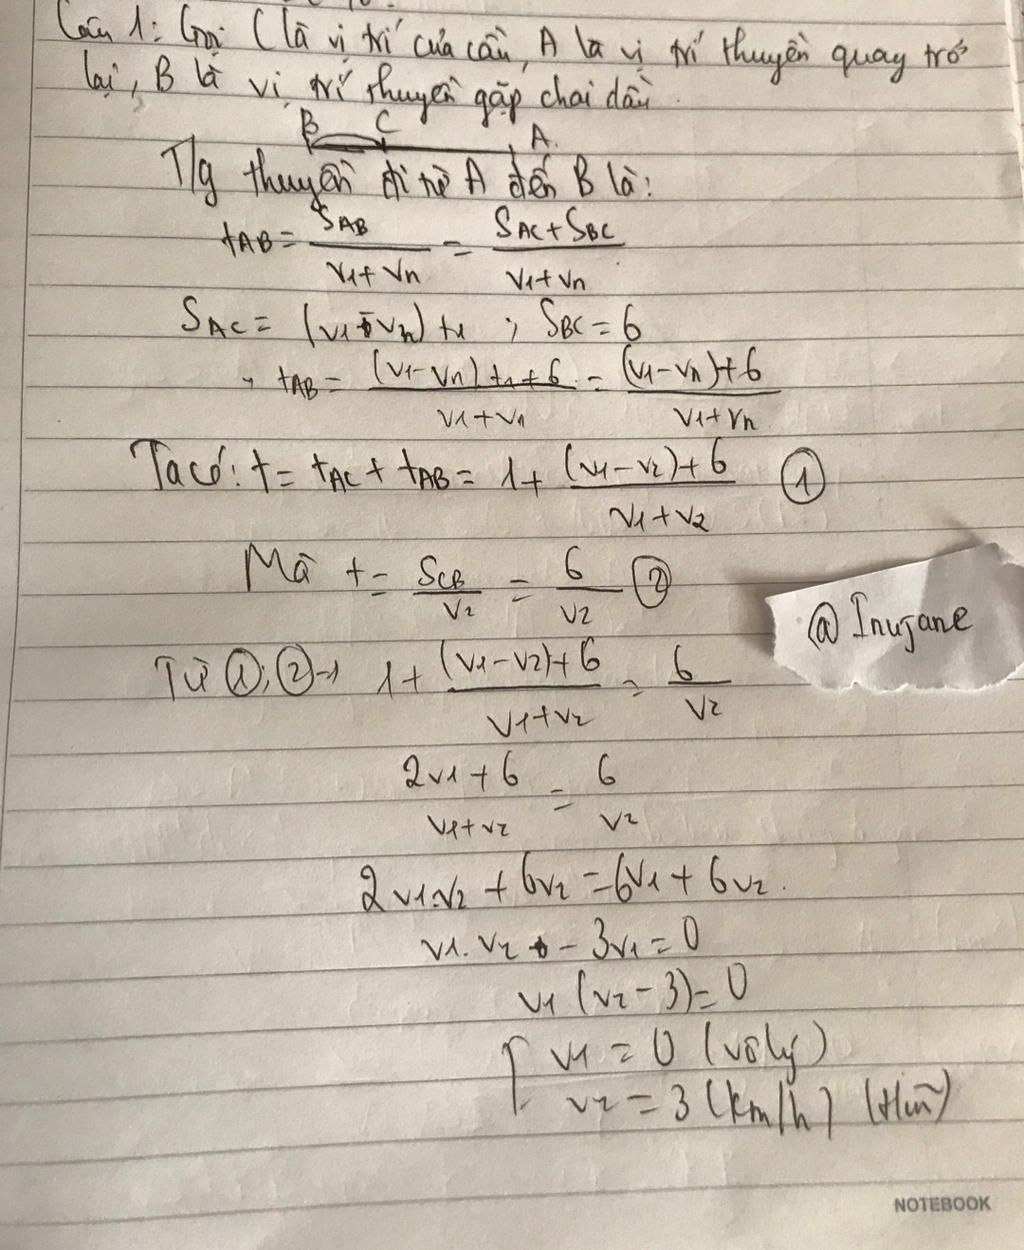 Câu 1: Gọi C là vị trí của cầu, A là vị trí thuyền quay trở
lại, B là vị trí thuyền gặp chai dầu.
B C A
T/g thuyền đi từ A đến B là:
tAB = SAB / (v1 + vn) = (SAC + SBC) / (v1 + vn)
SAC = (v1 - vn) t1 ; SBC = 6
tAB = ((v1 - vn) t1 + 6) / (v1 + vn) = ((v1 - vn) + 6) / (v1 + vn)
Ta có: t = tAC + tAB = 1 + ((v1 - v2) + 6) / (v1 + v2) ①
Mà t = SCB / v2 = 6 / v2 ②
@Inujane
Từ ①; ② → 1 + ((v1 - v2) + 6) / (v1 + v2) = 6 / v2
(2v1 + 6) / (v1 + v2) = 6 / v2
2v1.v2 + 6v2 = 6v1 + 6v2.
v1.v2 - 3v1 = 0
v1 (v2 - 3) = 0
[ v1 = 0 (vô lý)
v2 = 3 (km/h) (t/m)
NOTEBOOK